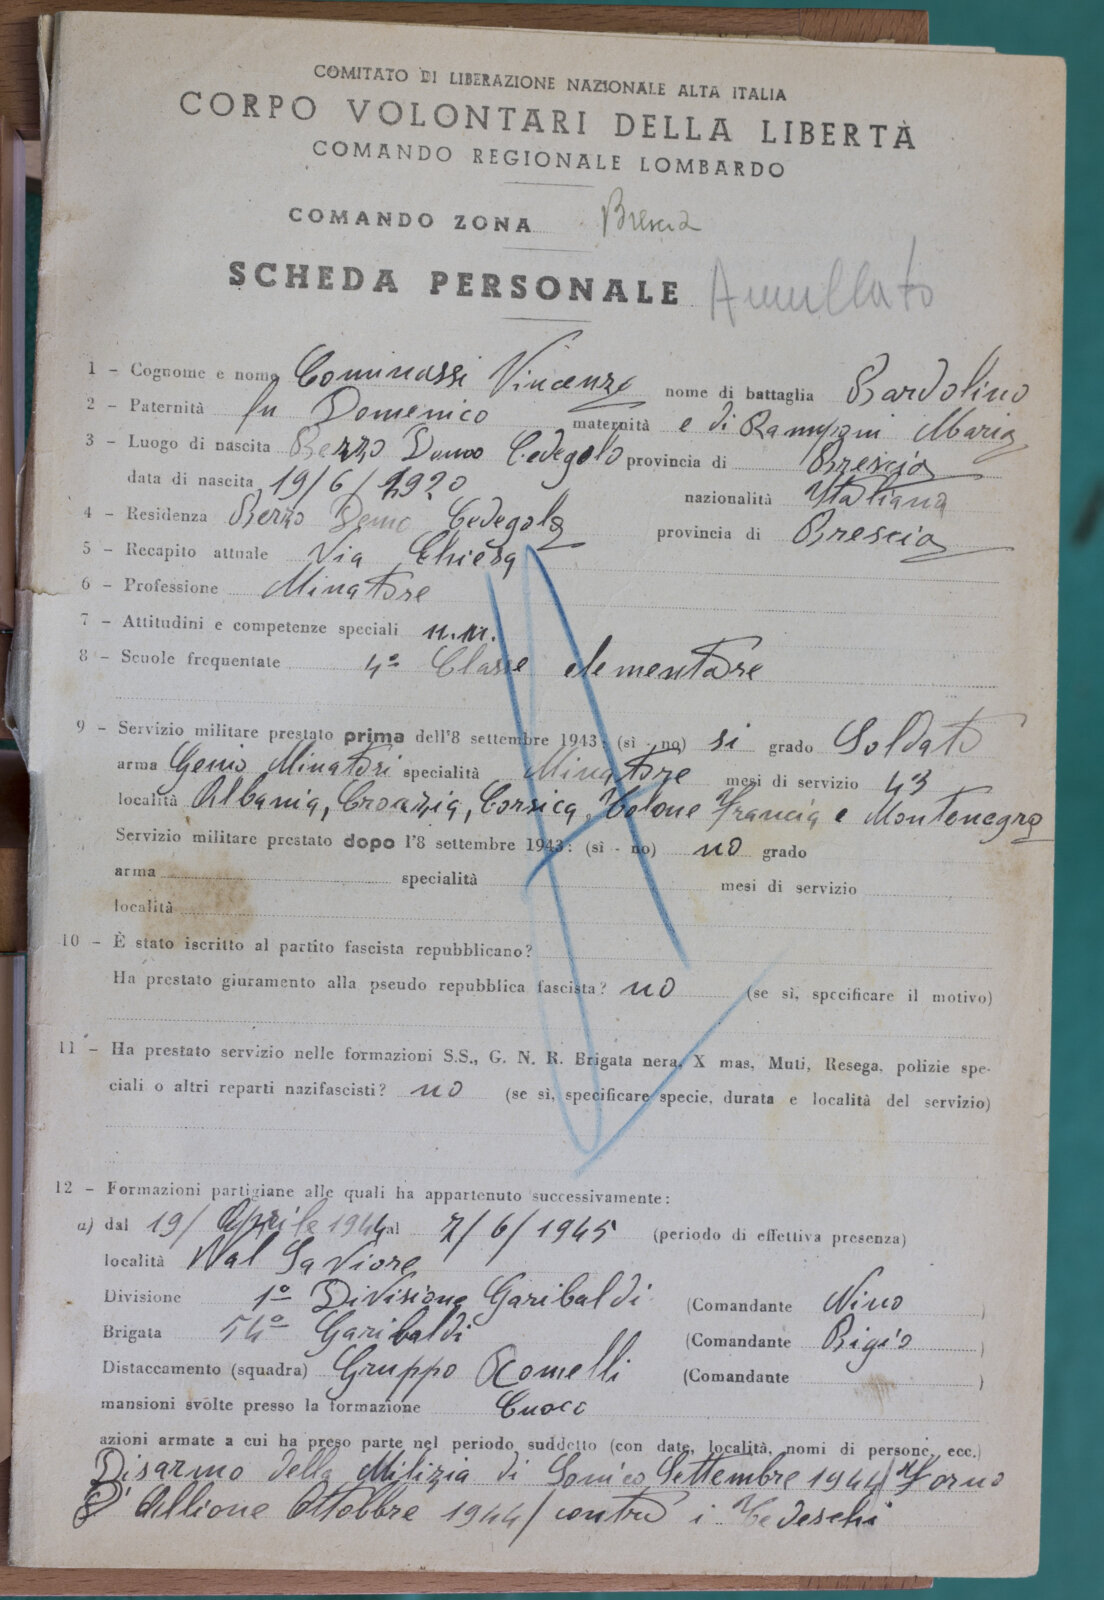 COMITATO DI LIBERAZIONE NAZIONALE ALTA ITALIA
CORPO VOLONTARI DELLA LIBERTÀ
COMANDO REGIONALE LOMBARDO
COMANDO ZONA Brescia
SCHEDA PERSONALE Annullato
1 - Cognome e nome Cominassi Vincenzo nome di battaglia Bardolino
2 - Paternità fu Domenico maternità e di Maria
3 - Luogo di nascita Berzo Demo Cedegolo provincia di Brescia
data di nascita 19/6/1920 nazionalità Italiana
4 - Residenza Berzo Demo Cedegolo provincia di Brescia
5 - Recapito attuale Via Chiesa
6 - Professione Minatore
7 - Attitudini e competenze speciali n.n.
8 - Scuole frequentate 4° Classe elementare
9 - Servizio militare prestato prima dell'8 settembre 1943: (sì - no) si grado Soldato
arma Genio Minatori specialità Minatore mesi di servizio 43
località Albania, Croazia, Corsica, Tolone Francia e Montenegro
Servizio militare prestato dopo l'8 settembre 1943: (sì - no) no grado
arma specialità mesi di servizio
località
10 - È stato iscritto al partito fascista repubblicano?
Ha prestato giuramento alla pseudo repubblica fascista? no (se sì, specificare il motivo)
11 - Ha prestato servizio nelle formazioni S.S., G. N. R. Brigata nera, X mas, Muti, Resega, polizie spe-
ciali o altri reparti nazifascisti? no (se sì, specificare specie, durata e località del servizio)
12 - Formazioni partigiane alle quali ha appartenuto successivamente:
a) dal 19/ Aprile 1944 al 7/6/1945 (periodo di effettiva presenza)
località Val Saviore
Divisione 1° Divisione Garibaldi (Comandante Nino )
Brigata 54° Garibaldi (Comandante Bigio )
Distaccamento (squadra) Gruppo Comelli (Comandante )
mansioni svolte presso la formazione Cuoco
azioni armate a cui ha preso parte nel periodo suddetto (con date, località, nomi di persone, ecc.)
Disarmo della Milizia di Sonico Settembre 1944/ Forno
D'Allione Ottobbre 1944/ contro i Tedeschi